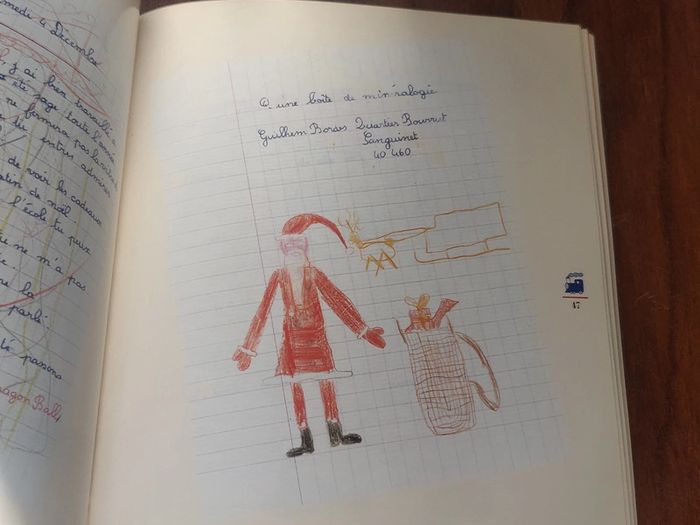 medi 4 Décembre
j'ai bien travaillé
été sage toute l'année
ne fermera pas
tu entres
de voir les cadeaux
matin de noël
l'école tu peux
ne m'a pas
la
parlé.
passons
Dragon Ball
Q- une boîte de min'ralogie
Guilhem Bordes Quartier Bourrut
Sanguinet
40 460
47